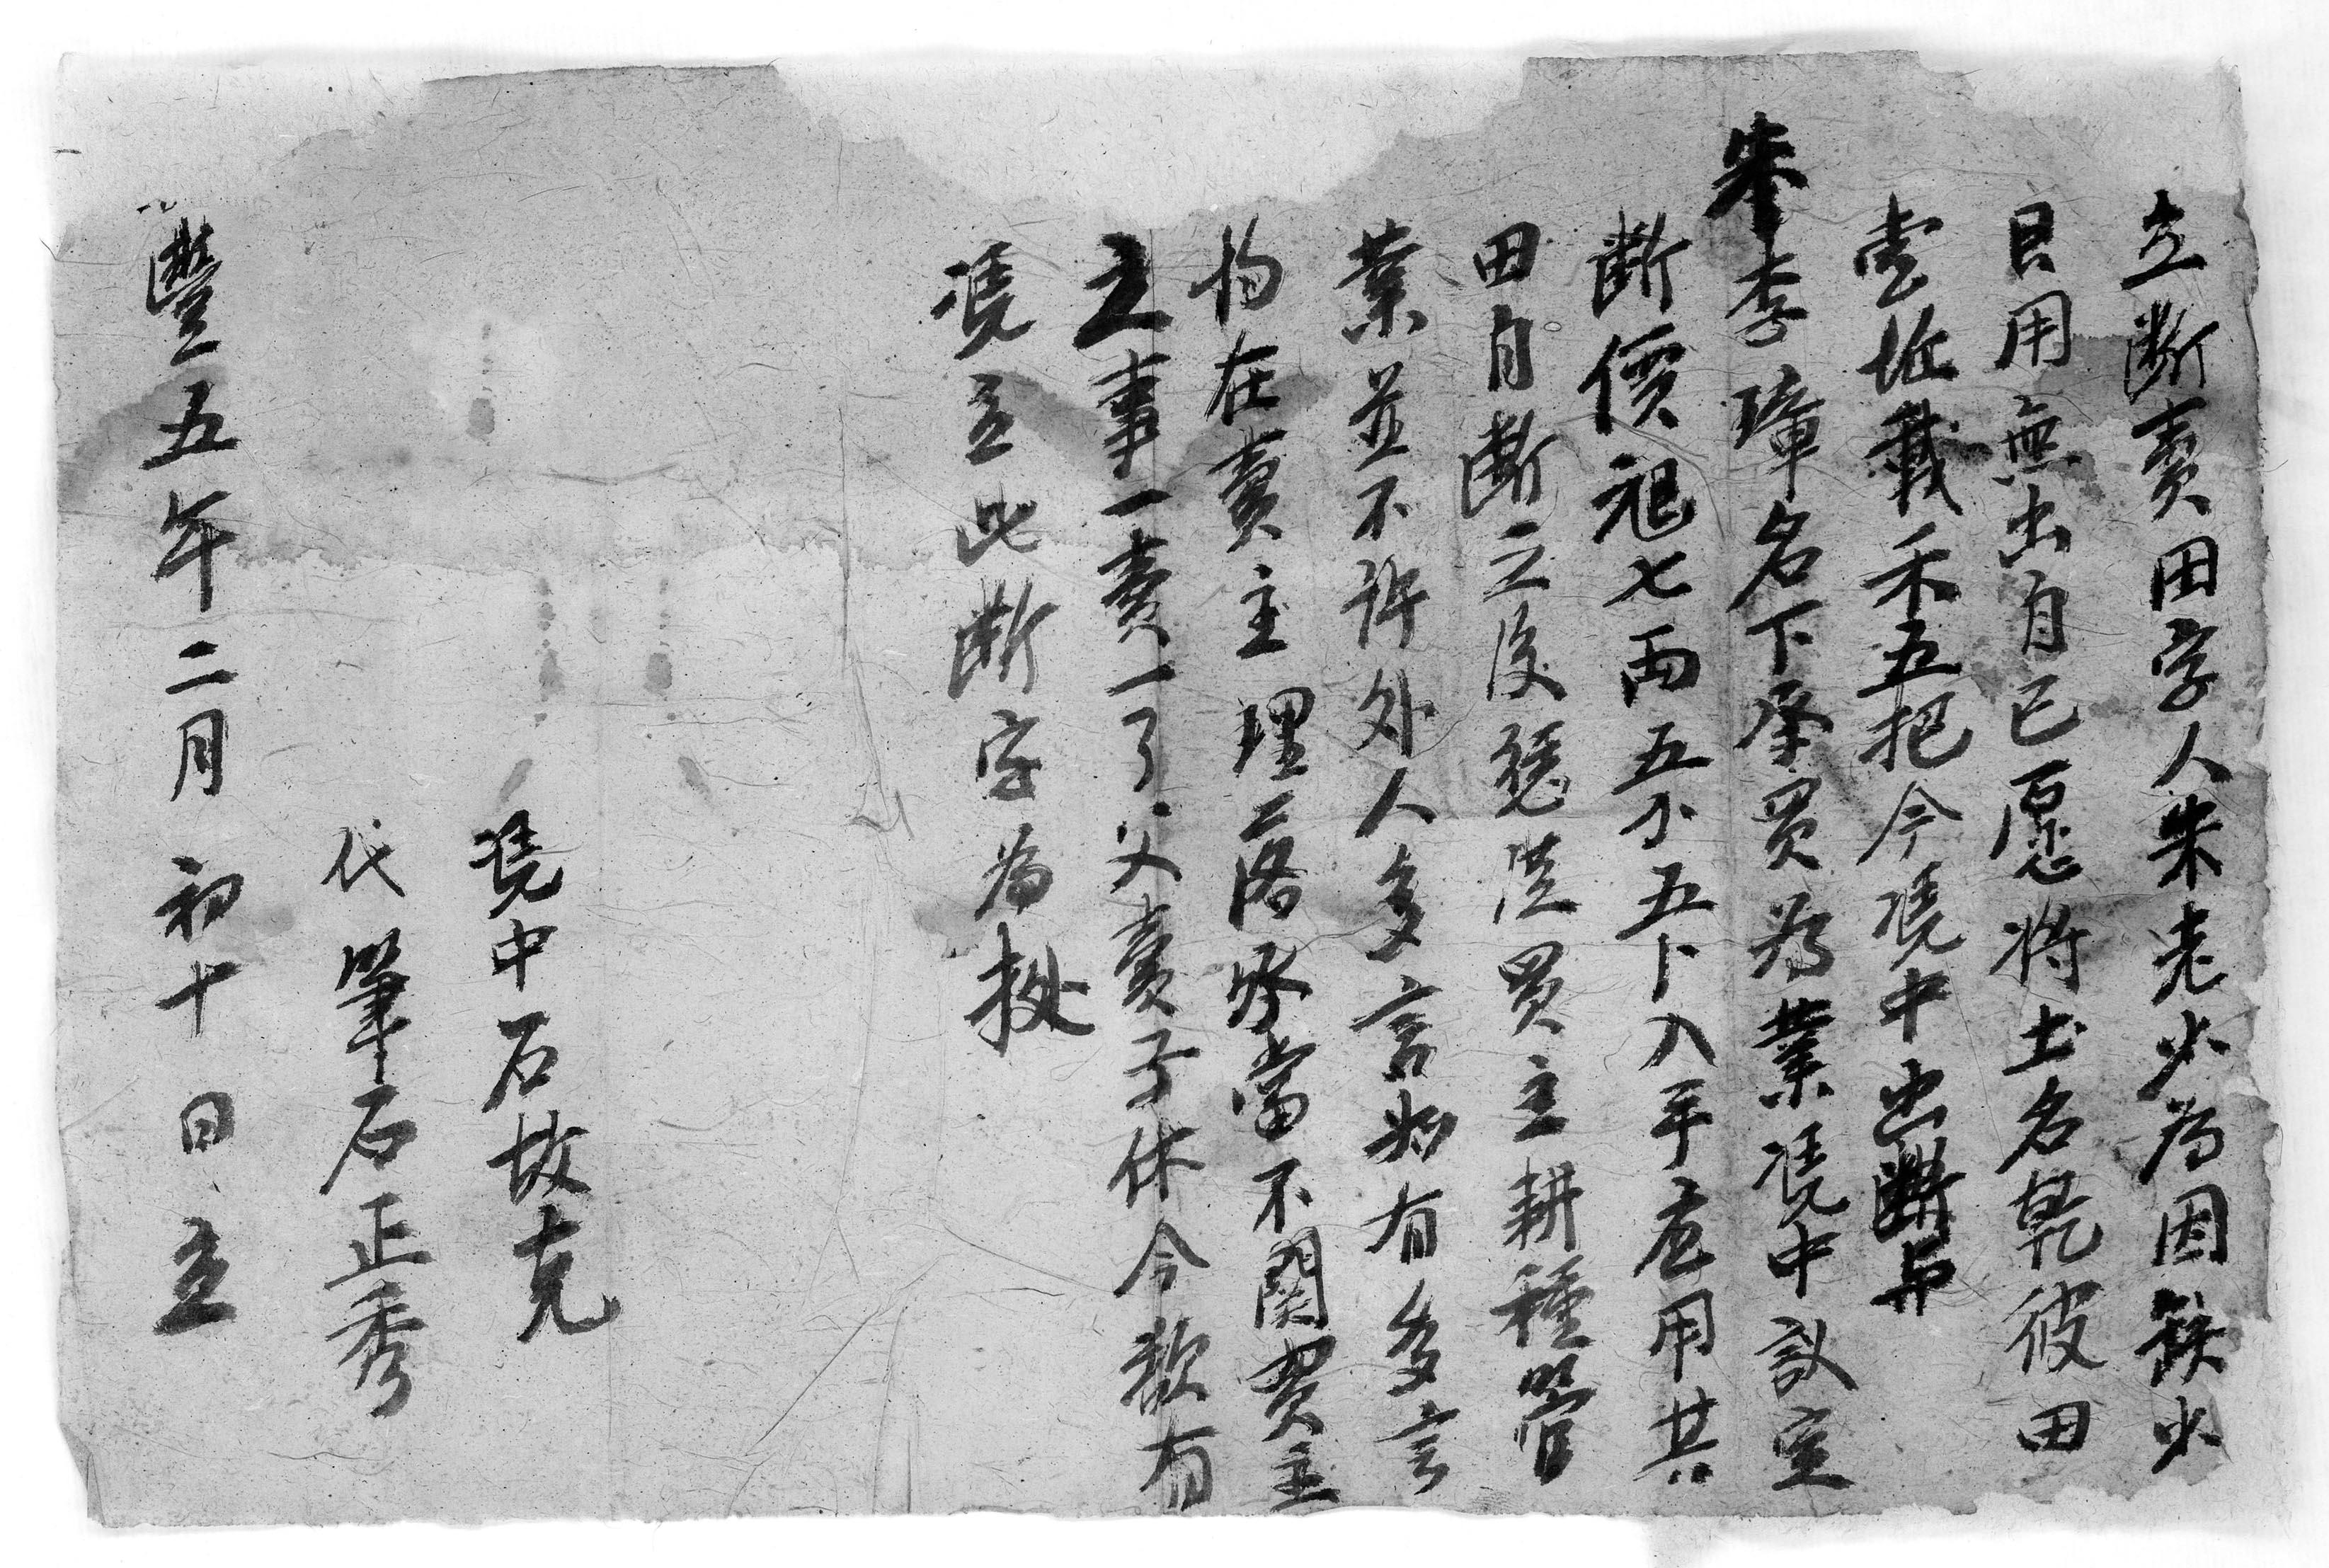 立断賣田字人朱老少為因缺少
日用無出自己愿將土名乾彼田
壹坵載禾五把今凴中出断與
朱李璋名下承買為業凴中議定
断價艮七両五卜五卜入手應用其
田自断之後憑從買主耕種管
業並不許外人多言如有多言
拘在賣主理落承當不関買主
之事一賣一了父賣子休今欲有
凴立此断字為據
凴中石故克
代筆石正秀
豐五年二月初十日立